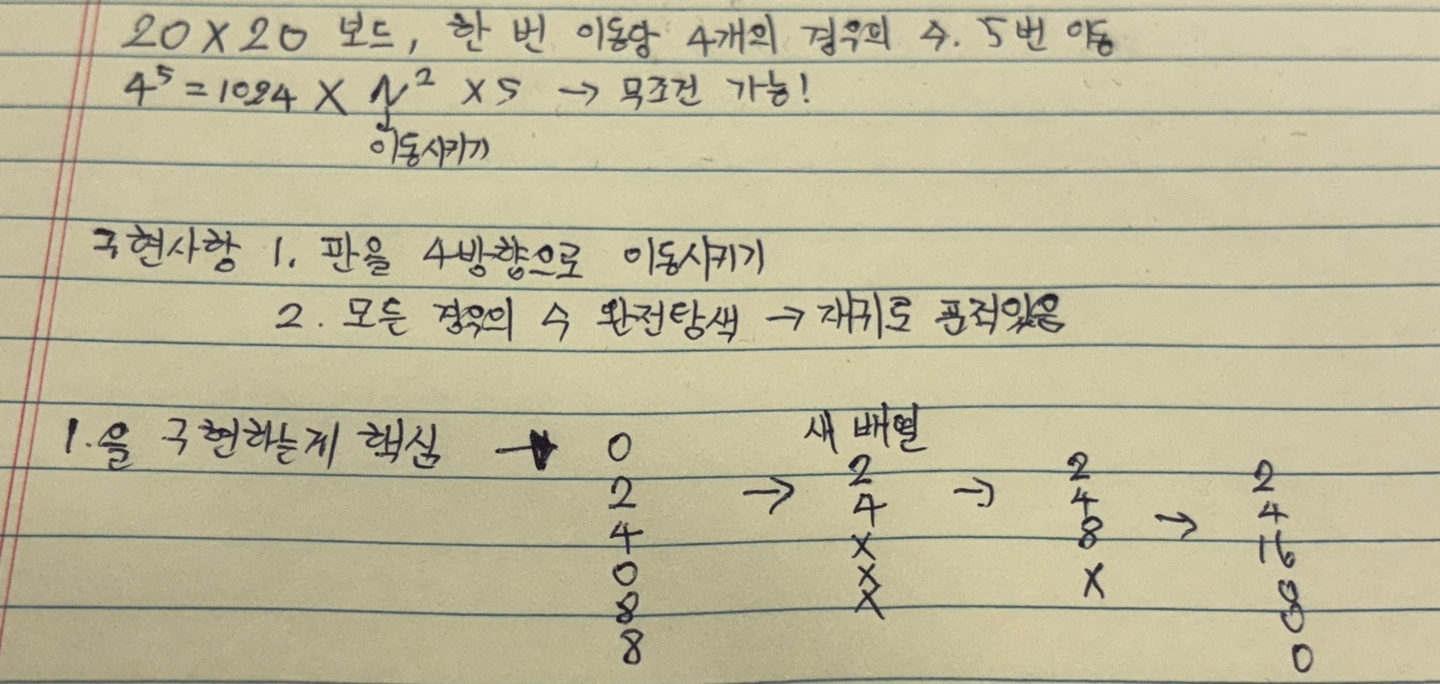 20 X 20 보드, 한 번 이동당 4개의 경우의 수. 5번 이동
4⁵ = 1024 X N² X 5 → 무조건 가능!
이동시키기
구현사항 1. 판을 4방향으로 이동시키기
2. 모든 경우의 수 완전탐색 → 재귀로 푼적있음
1.을 구현하는게 핵심 → 0 새 배열
2 → 2 → 2 → 2
4 4 4 4
0 X 8 16
8 X X 0
8 X 0
0